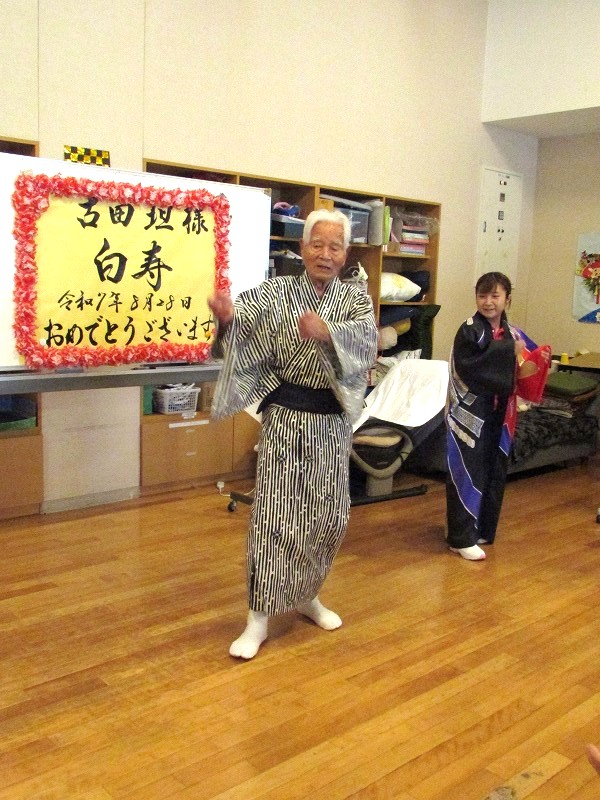 古田 坦様
白寿
令和7年8月28日
おめでとうございます